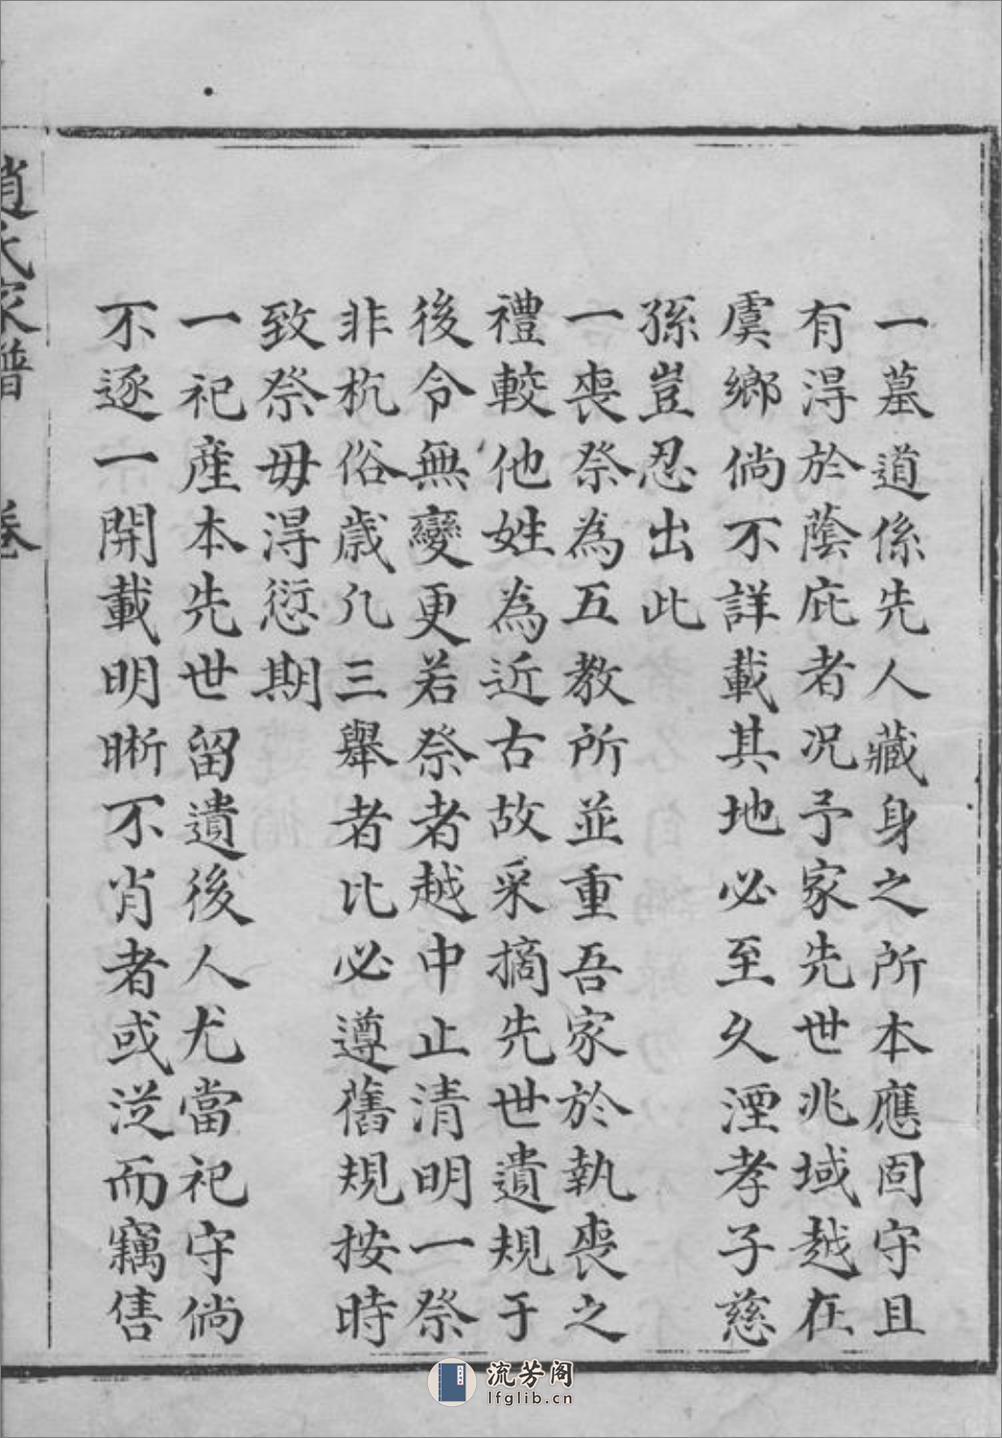 一墓道係先人藏身之所本應固守且
有淂於蔭庇者况予家先世兆域越在
虞鄉倘不詳載其地必至久湮孝子慈
孫豈忍出此
一喪祭為五教所並重吾家於執喪之
禮較他姓為近古故采摘先世遺規于
後令無變更若祭者越中止清明一祭
非杭俗歳凢三舉者比必遵舊規按時
致祭毋淂愆期
一祀產本先世留遺後人尤當祀守倘
不逐一開載明晰不肖者或從而竊售
趙氏家譜 卷
流芳阁
lfglib.cn